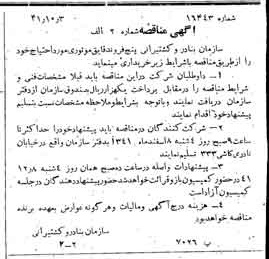 شماره ۱۶۳۴۳ ۳ر۱۰ر۴۱
آگهی مناقصه شماره ۲ الف
سازمان بنادر و کشتیرانی پنج فروند قایق موتوری مورد احتیاج خود
را از طریق مناقصه با شرایط زیر خریداری مینماید
۱ـ داوطلبان شرکت در این مناقصه باید قبلا مشخصات فنی و
شرایط مناقصه را در مقابل پرداخت یکهزار ریال بصندوق سازمان از دفتر
سازمان دریافت نمایند و با توجه بشرایط و ملاحظه مشخصات نسبت بتسلیم
پیشنهاد خود اقدام نمایند
۲ـ شرکت کنندگان در مناقصه باید پیشنهاد خود را حداکثر تا
ساعت ۹ صبح روز ۴ شنبه ۸ اسفندماه ۱۳۴۱ بدفتر سازمان واقع در خیابان
نادری کاشی ۳۳۳ تسلیم نمایند
۳ـ پیشنهادات واصله در ساعت ده صبح همان روز ۴ شنبه ۸ر۱۲ر
۴۱ در حضور کمیسیون باز و قرائت خواهد شد حضور پیشنهاد دهندگان در جلسه
کمیسیون آزاد است
۴ـ هزینه درج آگهی و مالیات و هر گونه عوارض بعهده برنده
مناقصه خواهد بود
سازمان بنادر و کشتیرانی
ب ۷۰۲۶ ۲-۲